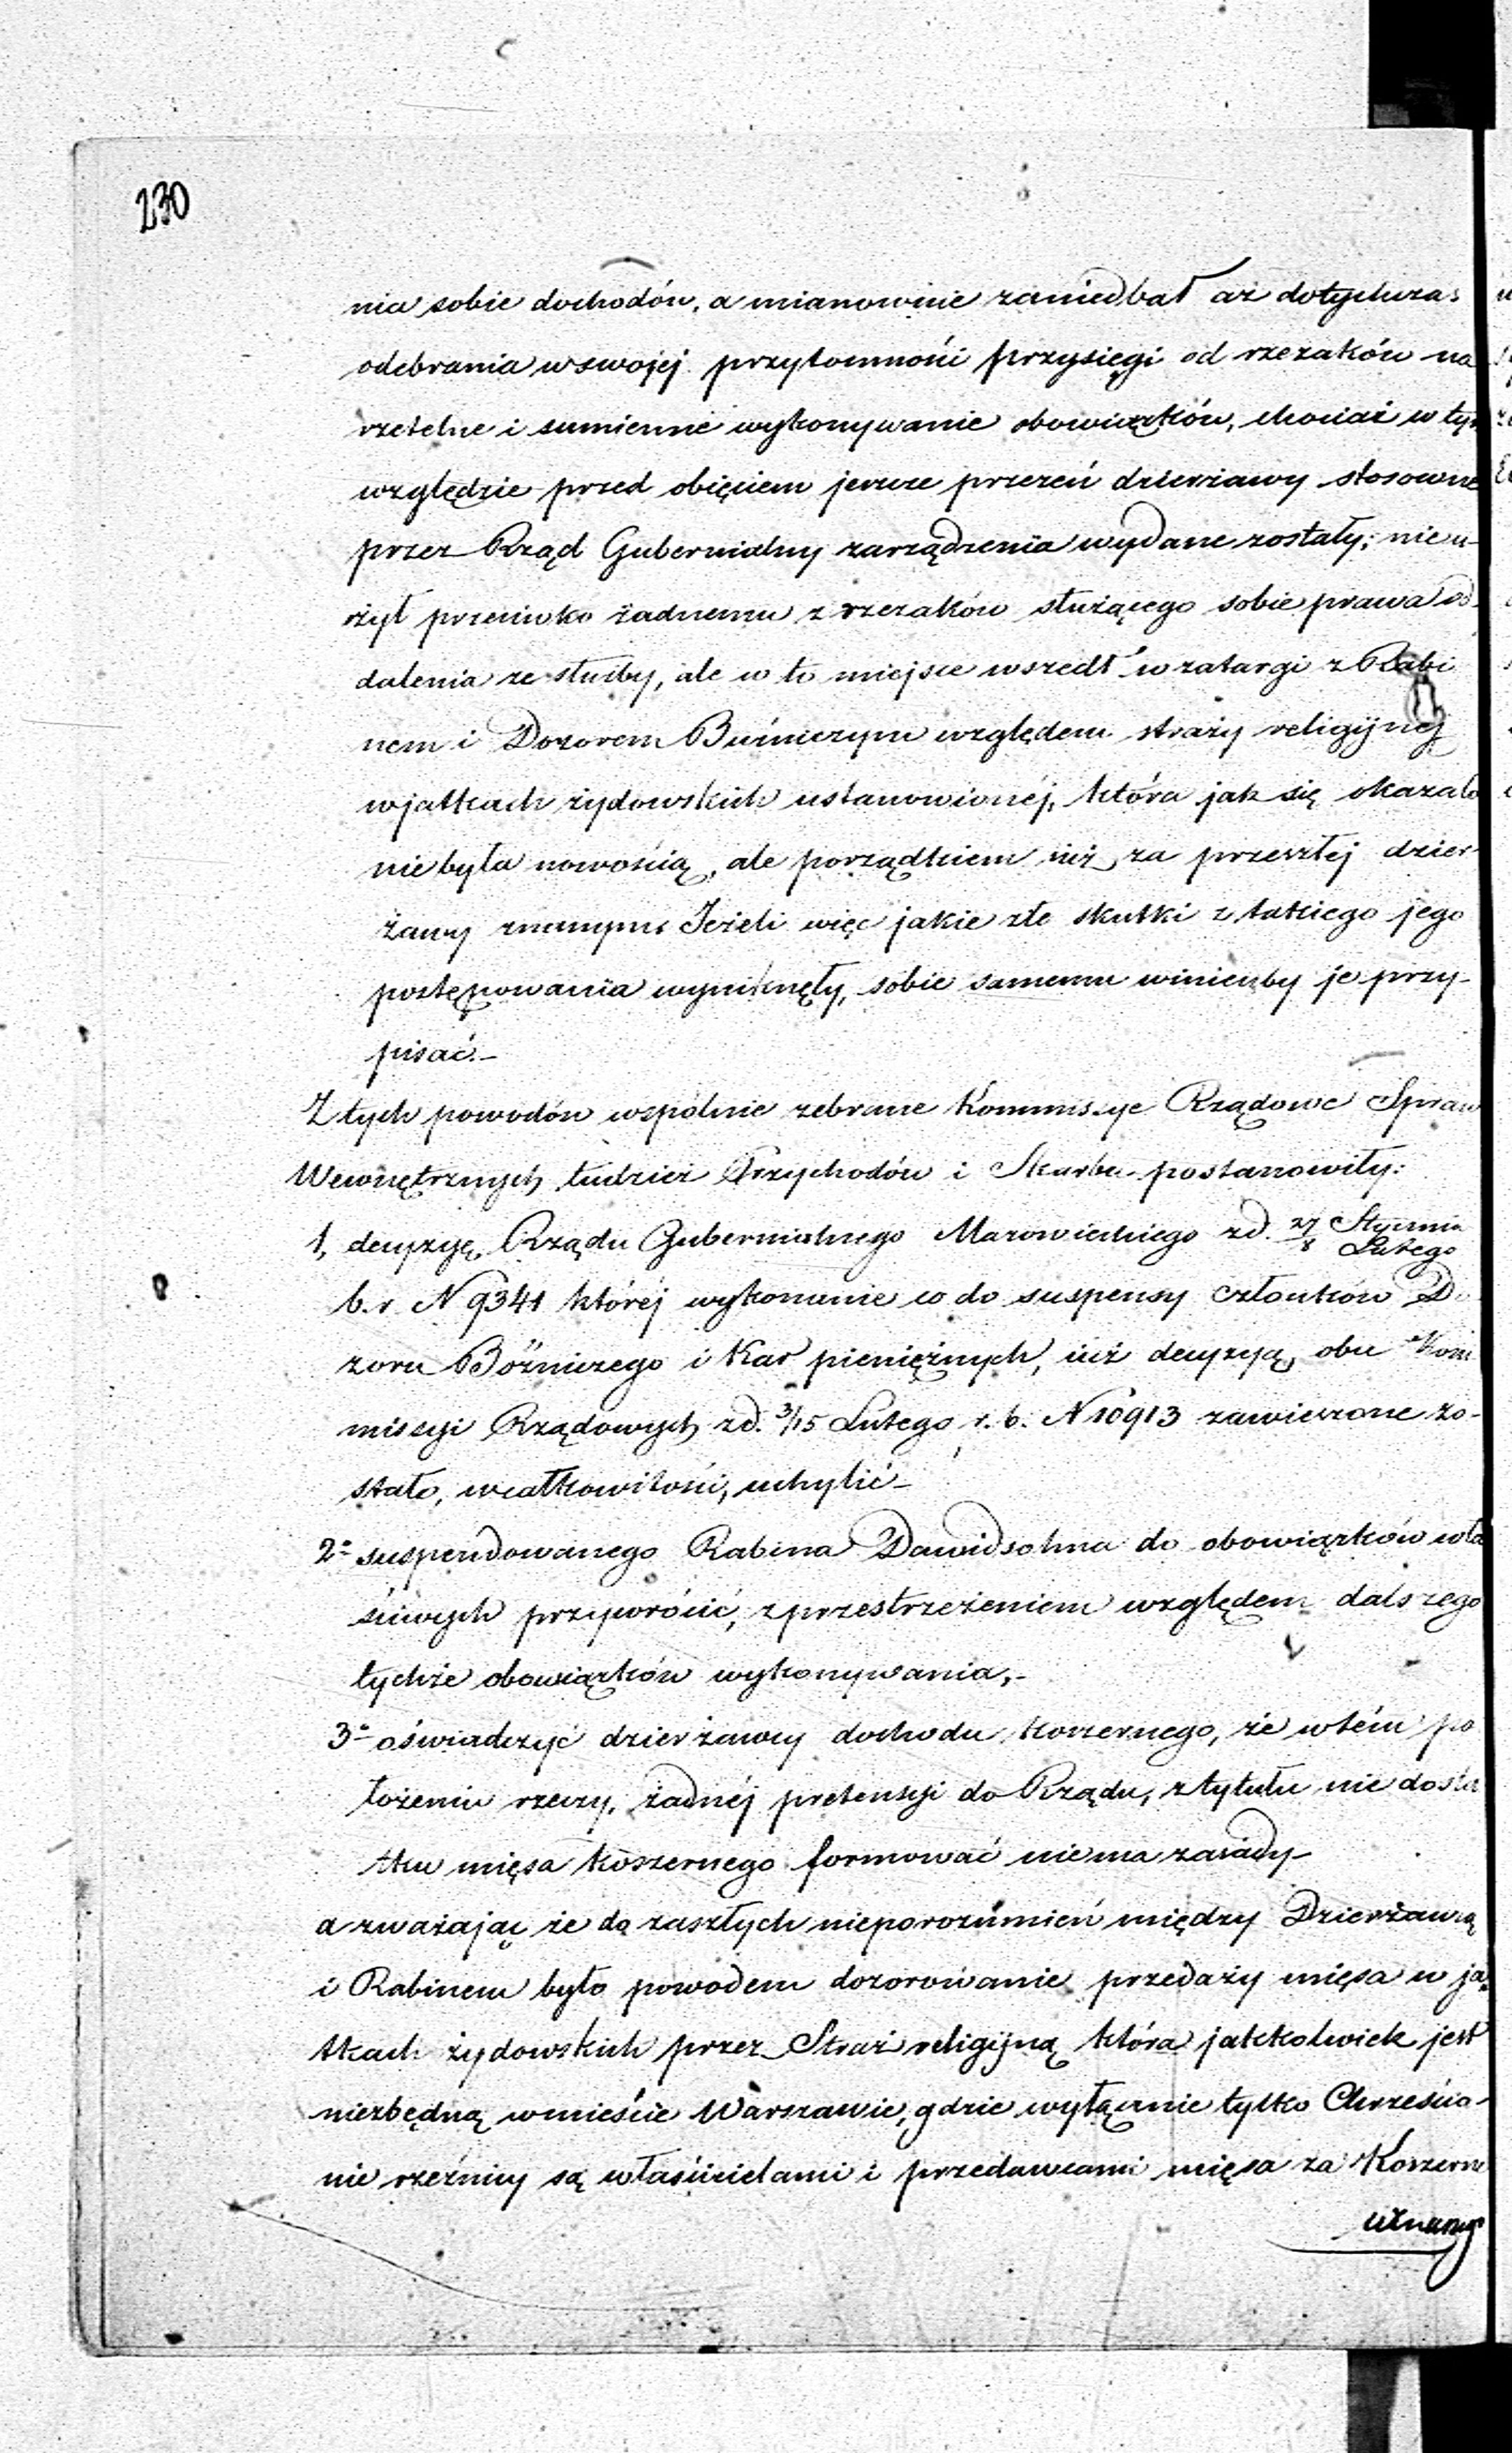 230
nia sobie dochodów, a mianowicie zaniedbał aż dotychczas
odebrania w swojej przytomności przysięgi od rzezaków na
rzetelne i sumienne wykonywanie obowiązków, chociaż w tym
względzie przed obięciem jeszcze przezeń dzierżawy stosowne
przez Rząd Gubernialny zarządzenia wydane zostały; nie u-
żył przeciwko żadnemu z rzezaków służącego sobie prawa od-
dalenia ze służby, ale w to miejsce wszedł w zatargi z Rabi
nem i Dozorem Bużniczym względem straży religijnej
w jatkach żydowskich ustanowionéj, która jak się okazało
nie była nowością, ale porządkiem iuż za przeszłej dzier-
żawy znanym. Jeżeli więc jakie złe skutki z takiego jego
postępowania wyniknęły, sobie samemu winienby je przy-
pisać.-
Z tych powodów wspólnie zebrane Kommissye Rządowe Spraw
Wewnętrznych tudzież Przychodów i Skarbu postanowiły:
1, decyzyę Rządu Gubernialnego Mazowieckiego z d. 27/8 Stycznia/Lutego
b. r. N 9341 której wykonanie co do suspensy członków Do
zoru Bóżniczego i Kar pieniężnych, iuż decyzyą obu Kom
missyi Rządowych z d. 3/15 Lutego r. b. N 10913 zawieszone zo-
stało, w całkowitości, uchylić-
2° suspendowanego Rabina Dawidsohna do obowiązków wła
ściwych przywrócić, z przestrzeżeniem względem dalszego
tychże obowiązków wykonywania,-
3° oświadczyć dzierżawcy dochodu koszernego, że w tém po
łożeniu rzeczy, żadnéj pretensyi do Rządu, z tytułu niedosta
tku mięsa koszernego formować nie ma zasady-
a zważając że do zaszłych nieporozumień między Dzierżawcą
i Rabinem było powodem dozorowanie przedaży mięsa w ja-
tkach żydowskich przez Straż religijną która jakkolwiek jest
niezbędną w mieście Warszawie, gdzie wyłącznie tylko Chrześcia-
nie rzeźnicy są właścicielami i przedawcami mięsa za Koszerne